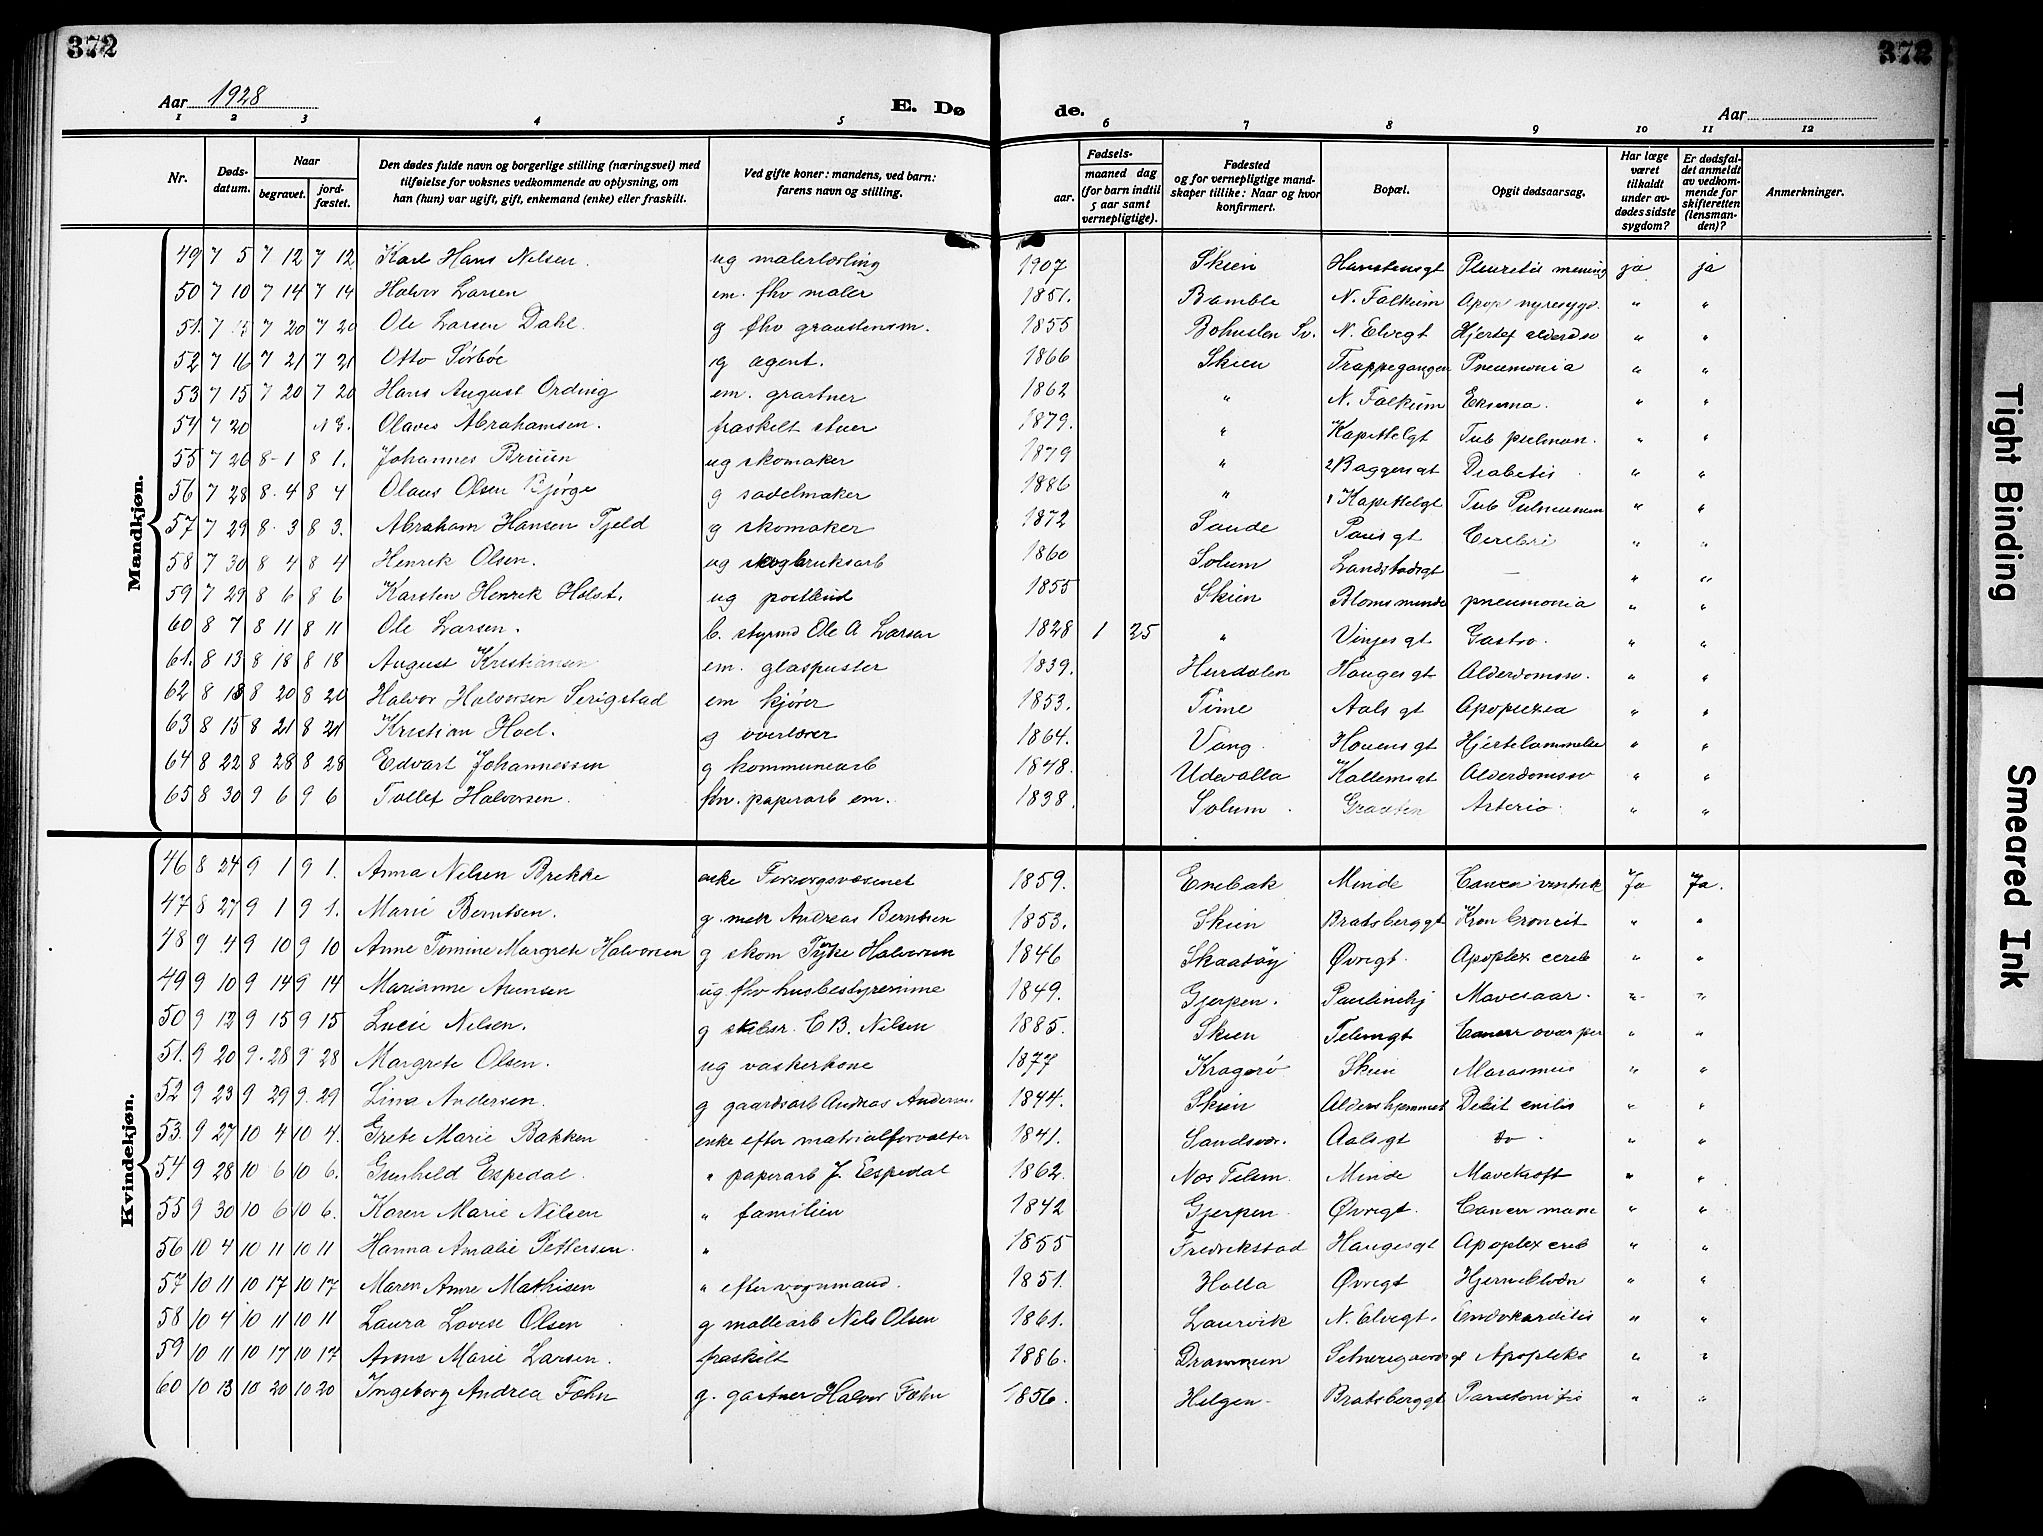 372
372
Aar 1928
E. Dø de.
Aar
1 2 3 4 5 6 7 8 9 10 11 12
Nr.
Døds-datum.
Naar
begravet.
jord-fæstet.
Den dødes fulde navn og borgerlige stilling (næringsvei) med tilføielse for voksnes vedkommende av oplysning, om han (hun) var ugift, gift, enkemand (enke) eller fraskilt.
Ved gifte koner: mandens, ved barn: farens navn og stilling.
Fødsels-
aar.
maaned dag (for barn indtil 5 aar samt vernepligtige).
Fødested og for vernepligtige mandskaper tillike: Naar og hvor konfirmert.
Bopæl.
Opgit dødsaarsag.
Har læge været tilkaldt under avdødes sidste sygdom?
Er dødsfaldet anmeldt av vedkommende for skifteretten (lensmanden)?
Anmerkninger.
Mandkjøn.
49 7 5 7 12 7 12 Karl Hans Nilsen. ug malerlærling 1907 Skien Hanstensgt Pleuretis mening ja ja
50 7 10 7 14 7 14 Halvor Larsen em. fhv maler 1851. Bamble N. Falkum Apop nyresyge " "
51. 7 7 20 7 20 Ole Larsen Dahl. g fhv graastensm. 1855 Bohuslen Sv. N. Elvegt Hjertef alderdsv " "
52 7 16 7 21 7 21 Otto Sørbøe g agent. 1866 Skien Trappegangen Pneumonia " "
53 7 15 7 20 7 20 Hans August Ording em. grartner 1862 " N. Falkum Eksema. " "
54 7 20 Olaves Abrahamsen. fraskilt stuer 1879. " Kapittelgt Tub pulmon. " "
55 7 26 8-1 8 1. Johannes Bruun ug skomaker 1879 " Baggersgt Diabetis " "
56 7 28 8-4 8 4 Olaus Olsen Bjørge g sadelmaker 1886 " Kapittelgt Tub Pulmunum " "
57 7 29 8-3 8 3. Abraham Hansen Fjeld g skomaker 1872 Saude Pausgt Cerebri " "
58 7 30 8 4 8 4 Henrik Olsen. ug skogbruksarb 1860 Solum Landstadsgt — " "
59 7 29 8 6 8 6 Karsten Henrik Holst. ug postbud 1855 Skien Blomsminde pneumonia " "
60 8 7 8 11 8 11 Ole Larsen. b. styrmd Ole A Larsen 1828 1 25 " Vinjesgt Gastro. " "
61. 8 13 8 18 8 18 August Kristiansen em. glaspuster 1839. Hurdalen Haugesgt Alderdomssv. " "
62 8 13 8 20 8 20 Halvor Halvorsen Serigstad em kjører 1853. Time Aalsgt Apoplexia " "
63 8 15 8 21 8 21 Kristian Hoel. g overlærer 1864. Vang. Houensgt Hjertelammelse " "
64 8 22 8 28 8 28 Edvart Johannessen g kommunearb 1848. Udevalla Kallemsgt Alderdomssv " "
65 8 30 9 6 9 6 Tollef Halvorsen. fhv. paperarb em. 1838. Solum. Graaten Arterio. " "
Kvindekjøn.
46 8 24 9 1 9 1. Anna Nilsen Brekke enke Forsorgsvæsenet 1859. Enebak Minde Cancer ventrik Ja Ja.
47 8 27 9 1 9 1. Marie Berntsen. g. mek Andreas Berntsen 1853. Skien Bratsberggt Kron broncit " "
48 9 4 9 10 9 10 Anne Tomine Margrete Halvorsen g skom Tyke Halvorsen 1846 Skaatøy Øvregt. Apoplex cereb " "
49 9 10 9 14 9 14 Marianne Arensen ug. fhv husbestyrerinne 1849. Gjerpen. Paulinehj Mavesaar. " "
50 9 12 9 15 9 15 Lucie Nilsen. g skibsr. C B. Nilsen 1885. Skien Telemgt Cancer ovar per " "
51. 9 20 9-28 9 28 Margrete Olsen. ug vaskerkone 1877 Kragerø Skien Marasmus " "
52 9 23 9 29 9. 29 Lina Andersen. g gaardsarb Andreas Andersen 1844. Skien Aldershjemmet Debit senilis " "
53. 9 27 10 4 10 4. Grete Marie Bakken enke efter matrialforvalter 1841. Sandsvær. Aalsgt do. " "
54 9 28 10 6 10 6. Gunhild Espedal. " paperarb J. Espedal 1862. Nos Telem. Minde Mavekræft " "
55 9 30 10 6 10 6. Karen Marie Nilsen " familien 1842 Gjerpen. Øvregt. Cancer mam " "
56 10 4 10 11 10 11 Hanna Amalie Pettersen. " 1855 Fredrikstad Haugesgt Apoplex cereb " "
57 10 11 10 17 10 17 Maren Anne Mathisen " efter vognmand. 1851. Holla Øvregt Hjerneblødn " "
58 10 4 10 11 10 11 Laura Lovise Olsen g mallearb Nils Olsen 1861. Laurvik N. Elvegt. Endokarditis " "
59 10 11 10 17 10 17 Anna Marie Larsen. fraskilt 1886. Drammen Apopleks " "
60 10 13 10 20 10 20 Ingeborg Andrea Fæhn g. gartner Halvor Fæhn 1856. Helgen. Bratsberggt " "
Tight Binding
Smeared Ink